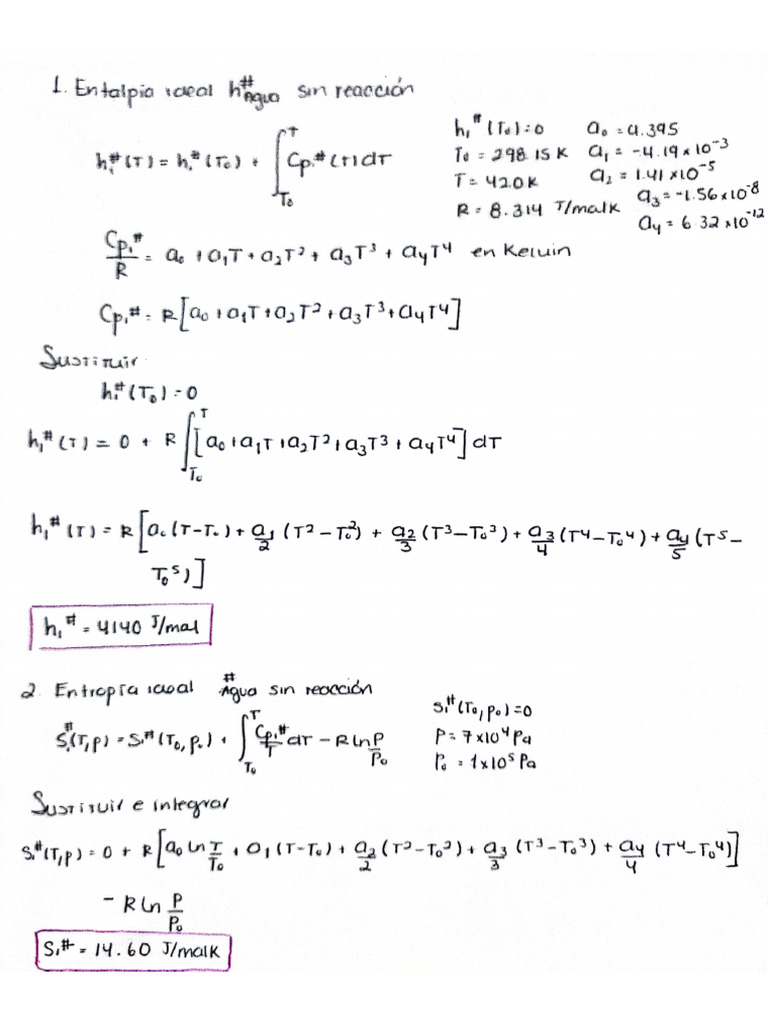 1. Entalpia ideal h#Agua sin reacción
h₁#(T₀)=0 a₀ = 4.395
h₁#(T) = h₁#(T₀) + ∫_{T₀}^{T} Cp₁#(T)dT
T₀ = 298.15 K a₁ = -4.19×10⁻³
T = 420 K a₂ = 1.41×10⁻⁵
R = 8.314 J/molK a₃ = -1.56×10⁻⁸
a₄ = 6.32×10⁻¹²
Cp₁#/R = a₀ + a₁T + a₂T² + a₃T³ + a₄T⁴ en Kelvin
Cp₁# = R[a₀ + a₁T + a₂T² + a₃T³ + a₄T⁴]
Sustituir
h₁#(T₀) = 0
h₁#(T) = 0 + R ∫_{T₀}^{T} [a₀ + a₁T + a₂T² + a₃T³ + a₄T⁴] dT
h₁#(T) = R[a₀(T-T₀) + a₁/2 (T² - T₀²) + a₂/3 (T³ - T₀³) + a₃/4 (T⁴ - T₀⁴) + a₄/5 (T⁵ -
T₀⁵)]
h₁# = 4140 J/mol
2. Entropía ideal #Agua sin reacción
s₁#(T₀, p₀) = 0
s₁#(T,p) = s₁#(T₀, p₀) + ∫_{T₀}^{T} Cp₁#/T dT - R ln P/P₀
P = 7×10⁴ Pa
P₀ = 1×10⁵ Pa
Sustituir e integrar
s₁#(T,p) = 0 + R[a₀ ln T/T₀ + a₁(T-T₀) + a₂/2 (T² - T₀²) + a₃/3 (T³ - T₀³) + a₄/4 (T⁴ - T₀⁴)]
- R ln P/P₀
s₁# = 14.60 J/molK